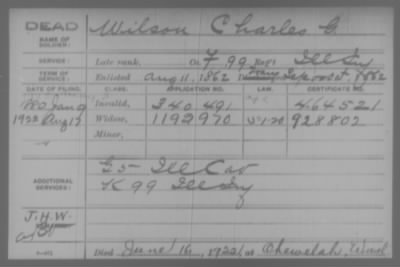 DEAD Wilson Charles G.
NAME OF SOLDIER:
SERVICE: Late rank, Co. F 99 Reg't Ill Inf
TERM OF SERVICE: Enlisted Aug 11, 1862
DATE OF FILING. CLASS. APPLICATION NO. LAW. CERTIFICATE NO.
Invalid, 340 491 464521
1922 Aug 17 Widow, 1192970 928802
Minor,
G 5 Ill Cav
ADDITIONAL SERVICES: K 99 Ill Inf
J.H.W.
Died June 16, 1922, at Chewelah,